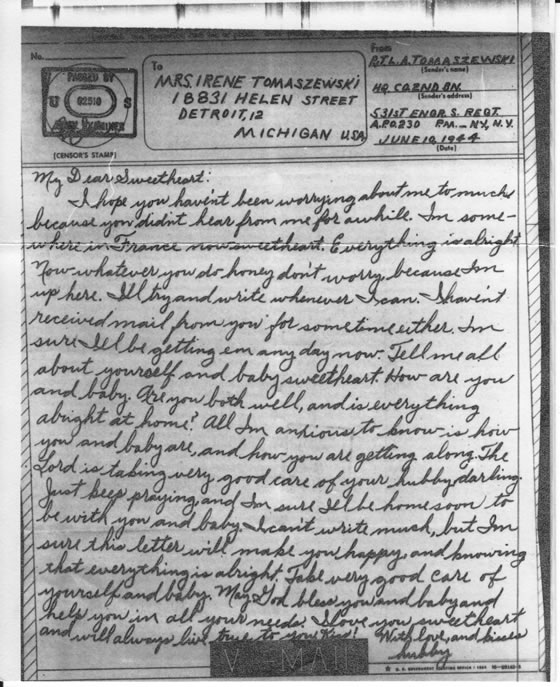 No.
PASSED BY
U S
02510
ARMY EXAMINER
(CENSOR'S STAMP)
To
MRS. IRENE TOMASZEWSKI
18831 HELEN STREET
DETROIT, 12
MICHIGAN USA
From
PVT L. A. TOMASZEWSKI
(Sender's name)
HQ. CO. 2ND. BN.
(Sender's address)
531ST ENGR. S. REGT.
A.P.O. 230 P.M. – N.Y, N.Y.
JUNE 10, 1944
(Date)
My Dear Sweetheart:
I hope you haven't been worrying about me to much
because you didn't hear from me for awhile. Im some-
where in France now sweetheart. Everything is alright
Now whatever you do honey don't worry, because Im
up here. I'll try and write whenever I can. I haven't
received mail from you for sometime either. Im
sure I'll be getting em any day now. Tell me all
about yourself and baby sweetheart. How are you
and baby. Are you both well, and is everything
alright at home? All Im anxious to know is how
you and baby are, and how you are getting along. The
Lord is taking very good care of your hubby, darling.
Just keep praying, and Im sure I'll be home soon to
be with you and baby. I can't write much, but Im
sure this letter will make you happy, and knowing
that everything is alright. Take very good care of
yourself and baby. May God bless you and baby and
help you in all your needs. I love you sweetheart
and will always live true to you Hon! With love, and kisses
hubby
V-MAIL